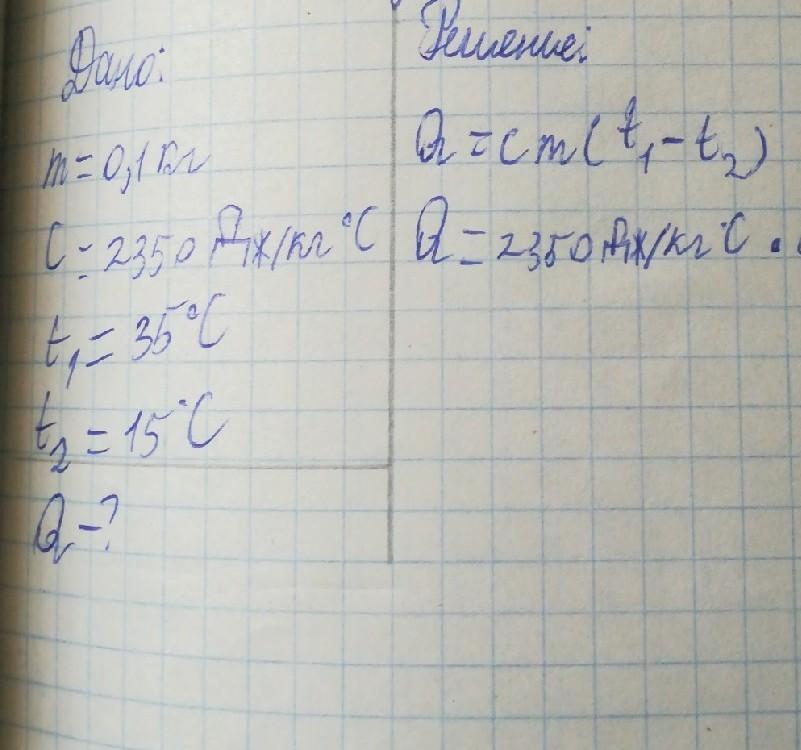 Дано:
m = 0,1 кг
C = 2350 Дж/кг °C
t₁ = 35°C
t₂ = 15°C
Q - ?
Решение:
Q = cm(t₁ - t₂)
Q = 2350 Дж/кг°C ·